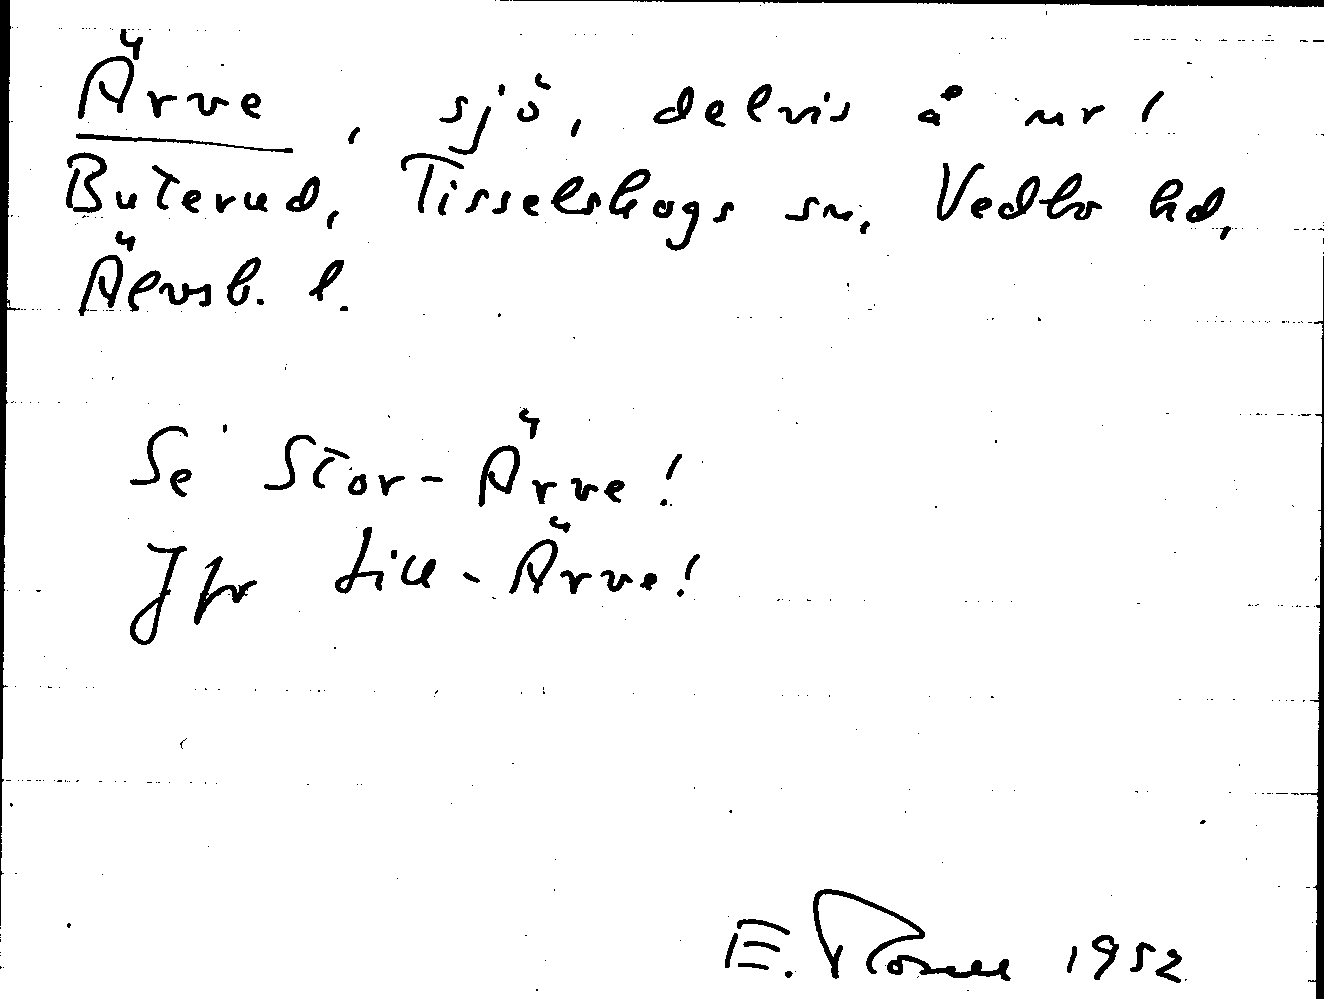 Ärve, sjö, delvis å nr 1
Buterud, Tisselskogs sn, Vedbo hd,
Älvsb. l.
Se Stor-Ärve!
Jfr Lill-Ärve!
E. Rosell 1952